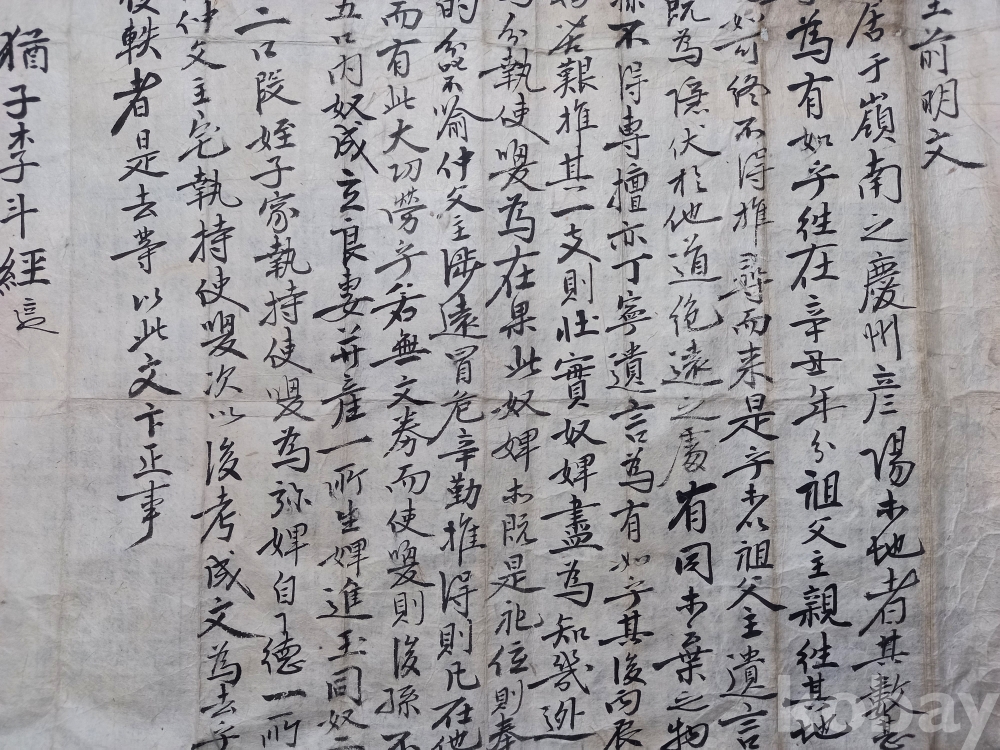 主前明文
居于嶺南之慶州彦陽等地者其數
爲有如乎往在辛丑年分祖父主親往其地
如可終不得推尋而来是乎等以祖父主遺言
既爲隱伏於他道絶遠之處有同等棄之物
不得專擅亦丁寧遺言爲有如乎其後丙辰
苦艱推其一支則壯實奴婢盡爲知幾迯
分執使喚爲在果此奴婢等既是祀位則奉
的分叱不喩仲父主涉遠冒危辛勤推得則凡在他
而有此大功勞乎若無文券而使喚則後孫不
五口內奴成立良妻并産一所生婢進玉同奴
二口段姪子家執持使喚爲旀婢自德一所
仲父主宅執持使喚次以後考成文爲去乎
軼者是去等以此文卞正事
猶子李斗經
kobay